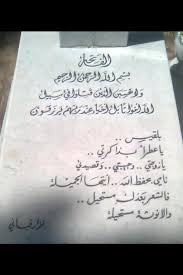 الفاتحة
بسم الله الرحمن الرحيم
ولا تحسبن الذين قتلوا في سبيل
الله أمواتا بل أحياء عند ربهم يرزقون
بلقيس ..
يا عطرا بذاكرتي ..
يا زوجتي .. وحبيبتي .. وقصيدتي
نامي بحفظ الله .. أيتها الجميلة
فالشعر بعدك مستحيل ..
والأنوثة مستحيلة
نزار قباني